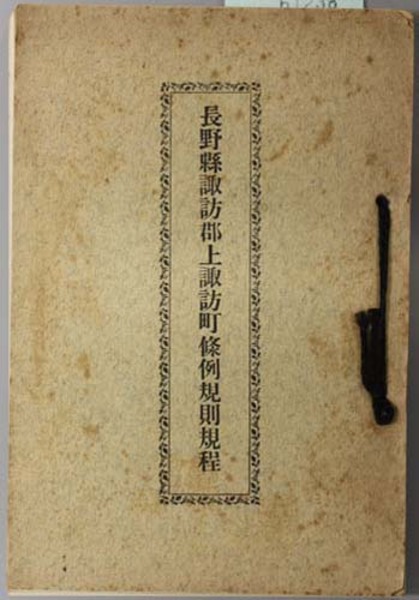 長野縣諏訪郡上諏訪町條例規則規程